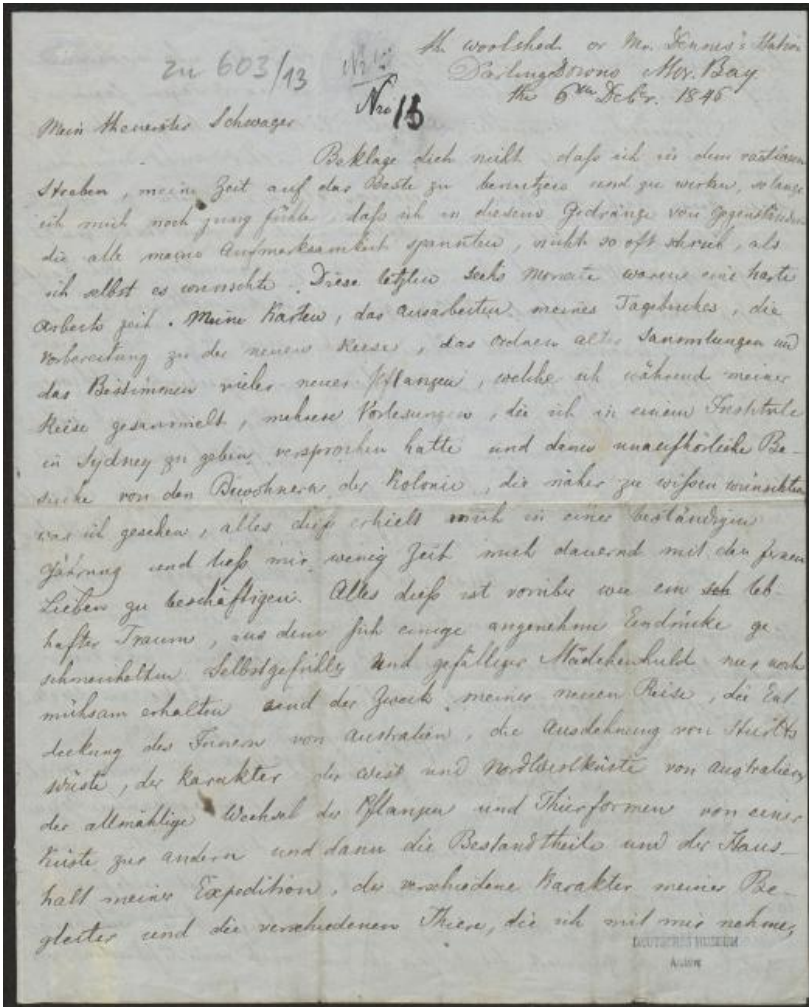 the woolshed or Mr. Dennis's Station
zu 603/13
Darling Downs Mor. Bay
Nro 13
the 6th Decbr. 1846
Mein theuerster Schwager
Beklage dich nicht daß ich in dem rastlosen
Streben, meine Zeit auf das Beste zu benutzen und zu wirken, solange
ich mich noch jung fühle, daß ich in diesem Gedränge von Gegenständen
die alle meine Aufmerksamkeit spannten, nicht so oft schrieb, als
ich selbst es wünschte. Diese letzten sechs Monate waren eine harte
Arbeits zeit. Meine Karten, das Ausarbeiten meines Tagebuches, die
Vorbereitung zu der neuen Reise, das Ordnen alter Sammlungen und
das Bestimmen vieler neuer Pflanzen, welche ich während meiner
Reise gesammelt, mehrere Vorlesungen, die ich in einem Institute
in Sydney zu geben versprochen hatte und dann unaufhörliche Be-
suche von den Bewohnern der Kolonie, die näher zu wißen wünschten
was ich gesehen, alles dieß erhielt mich in einer beständigen
Gährung und ließ mir wenig Zeit mich dauernd mit den fernen
Lieben zu beschäftigen. Alles dieß ist vorüber wie ein sch leb-
hafter Traum, aus dem sich einige angenehme Eindrücke ge-
schmeichelten Selbstgefühles und gefälliger Mädchenhuld nur noch
mühsam erhalten und der Zweck meiner neuen Reise, die Ent
deckung des Innern von Australien, die Ausdehnung von Sturt's
wüste, der Karakter der West und Nordwestküste von Australien
der allmählige Wechsel der Pflanzen und Thierformen von einer
Küste zur andern und dann die Bestandtheile und der Haus-
halt meiner Expedition, der verschiedene Karakter meiner Be-
gleiter und die verschiedenen Thiere, die ich mit mir nehme,
DEUTSCHES MUSEUM
Archiv